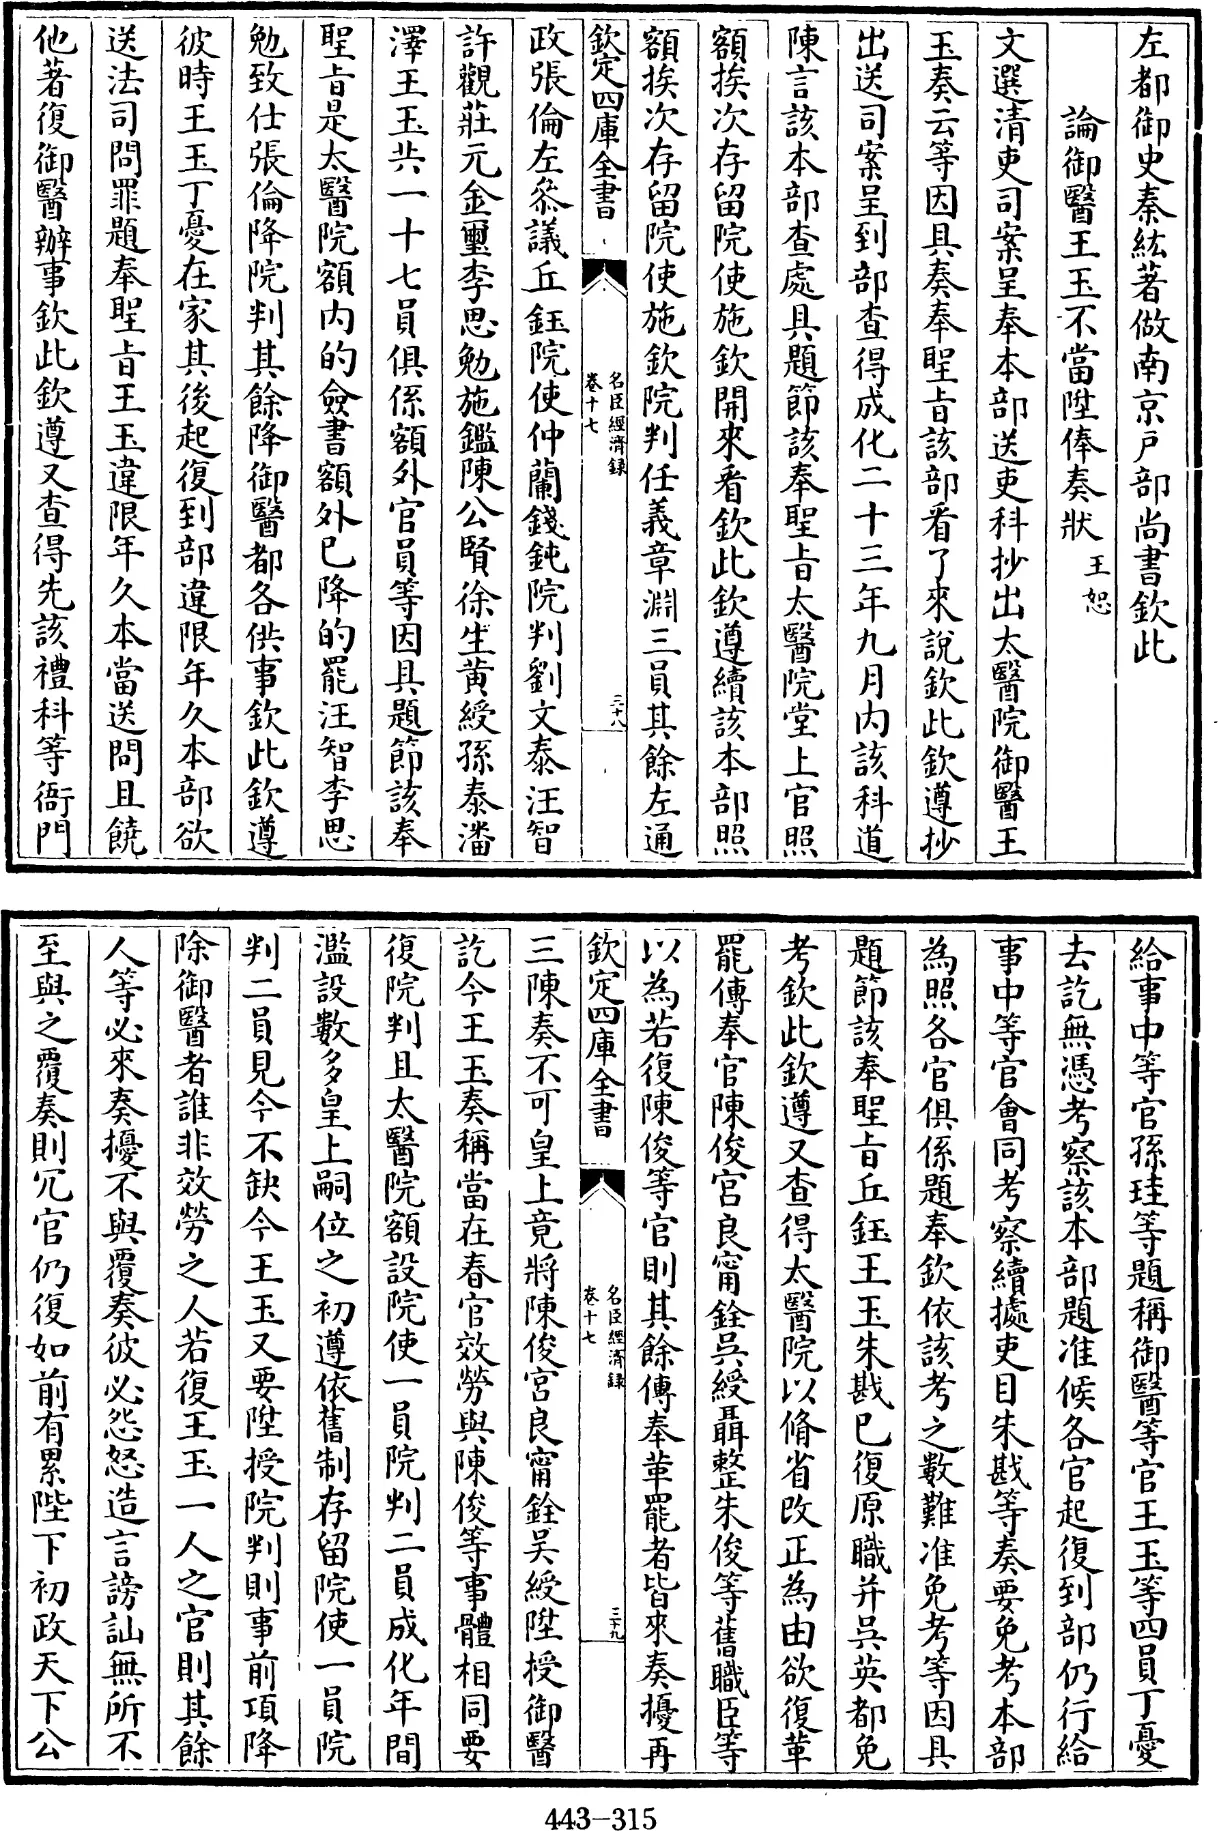 左都御史秦紘著做南京戶部尚書欽此
論御醫王玉不當陞俸奏狀 王恕
文選清吏司案呈奉本部送吏科抄出太醫院御醫王
玉奏云等因具奏奉聖旨該部看了來說欽此欽遵抄
出送司案呈到部查得成化二十三年九月内該科道
陳言該本部查處具題節該奉聖旨太醫院堂上官照
額挨次存留院使施欽開來看欽此欽遵續該本部照
額挨次存留院使施欽院判任義章淵三員其餘左通
欽定四庫全書
名臣經濟録
卷十七
三十八
政張倫左叅議丘鈺院使仲蘭錢鈍院判劉文泰汪智
許觀莊元金璽李思勉施鑑陳公賢徐生黄綬孫泰潘
澤王玉共一十七員俱係額外官員等因具題節該奉
聖旨是太醫院額内的僉書額外已降的罷汪智李思
勉致仕張倫降院判其餘降御醫都各供事欽此欽遵
彼時王玉丁憂在家其後起復到部違限年久本部欲
送法司問罪題奉聖旨王玉違限年久本當送問且饒
他著復御醫辦事欽此欽遵又查得先該禮科等衙門
給事中等官孫珪等題稱御醫等官王玉等四員丁憂
去訖無憑考察該本部題准候各官起復到部仍行給
事中等官會同考察續據吏目朱戡等奏要免考本部
為照各官俱係題奉欽依該考之數難准免考等因具
題節該奉聖旨丘鈺王玉朱戡已復原職并吳英都免
考欽此欽遵又查得太醫院以脩省改正為由欲復革
罷傳奉官陳俊宮良甯銓吳綬聶整朱俊等舊職臣等
以為若復陳俊等官則其餘傳奉革罷者皆來奏擾再
欽定四庫全書
名臣經濟録
卷十七
三十九
三陳奏不可皇上竟將陳俊宮良甯銓吴綬陞授御醫
訖今王玉奏稱當在春官效勞與陳俊等事體相同要
復院判且太醫院額設院使一員院判二員成化年間
濫設數多皇上嗣位之初遵依舊制存留院使一員院
判二員見今不缺今王玉又要陞授院判則事前項降
除御醫者誰非效勞之人若復王玉一人之官則其餘
人等必來奏擾不與覆奏彼必怨怒造言謗訕無所不
至與之覆奏則冗官仍復如前有累陛下初政天下公
443-315